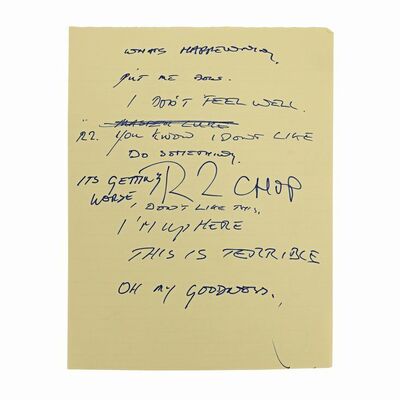 WHATS HAPPENING.
PUT ME DOWN.
I DON'T FEEL WELL.
MASTER LUKE
R2. YOU KNOW I DONT LIKE
DO SOMETHING.
ITS GETTING WORSE
R2 CHOP
I DON'T LIKE THIS.
I'M UP HERE
THIS IS TERRIBLE
OH MY GOODNESS.